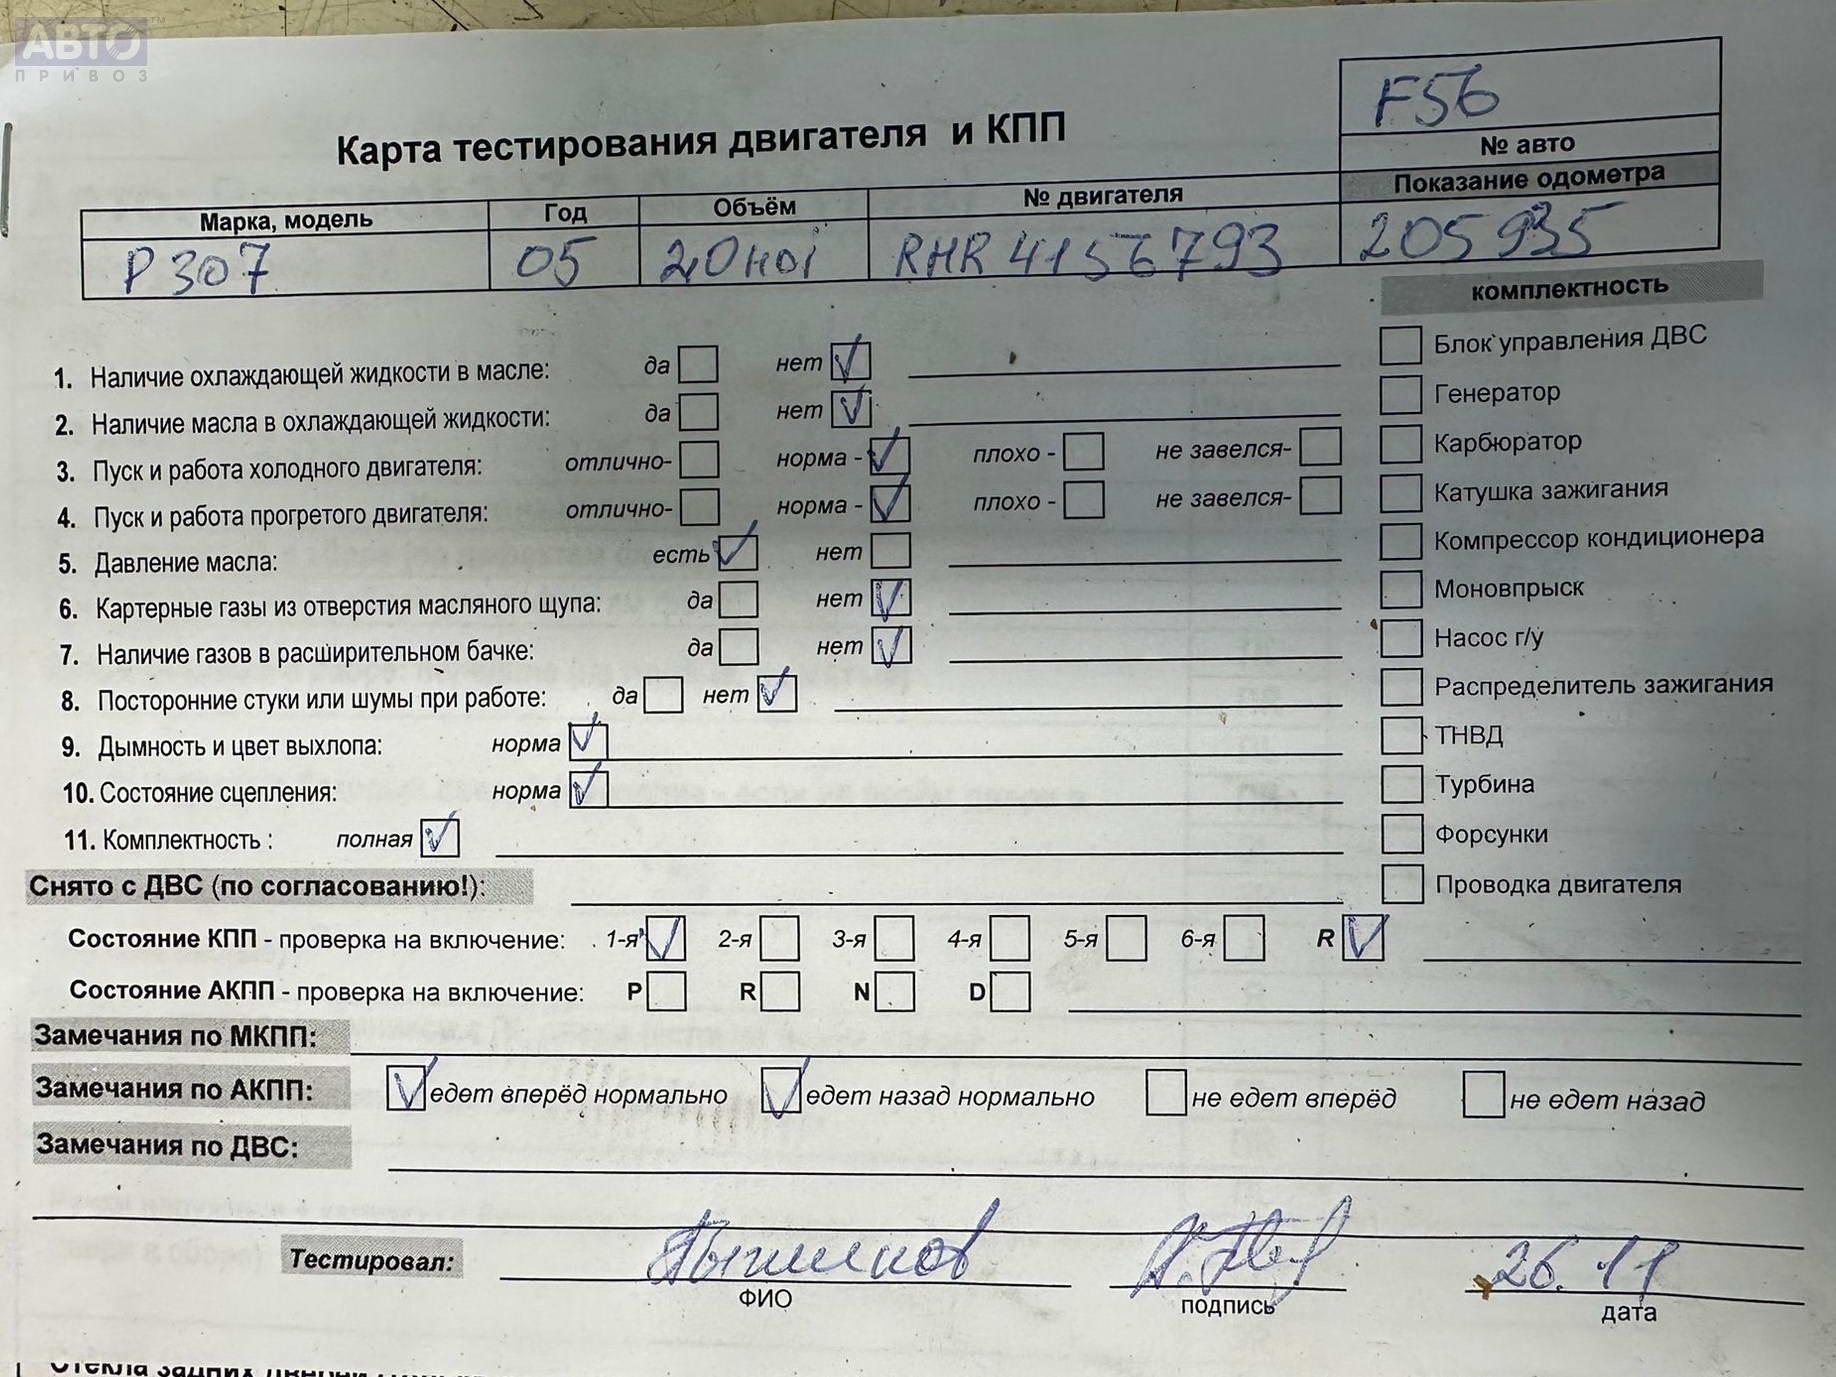 АВТО™
ПРИВОЗ
F56
№ авто
Карта тестирования двигателя и КПП
Марка, модель Год Объём № двигателя Показание одометра
P 307 05 2,0 HDI RHR 4156793 205935
комплектность
1. Наличие охлаждающей жидкости в масле: да нет
2. Наличие масла в охлаждающей жидкости: да нет
3. Пуск и работа холодного двигателя: отлично- норма - плохо - не завелся-
4. Пуск и работа прогретого двигателя: отлично- норма - плохо - не завелся-
5. Давление масла: есть нет
6. Картерные газы из отверстия масляного щупа: да нет
7. Наличие газов в расширительном бачке: да нет
8. Посторонние стуки или шумы при работе: да нет
9. Дымность и цвет выхлопа: норма
10. Состояние сцепления: норма
11. Комплектность : полная
Блок управления ДВС
Генератор
Карбюратор
Катушка зажигания
Компрессор кондиционера
Моновпрыск
Насос г/у
Распределитель зажигания
ТНВД
Турбина
Форсунки
Проводка двигателя
Снято с ДВС (по согласованию!):
Состояние КПП - проверка на включение: 1-я 2-я 3-я 4-я 5-я 6-я R
Состояние АКПП - проверка на включение: P R N D
Замечания по МКПП:
Замечания по АКПП: едет вперёд нормально едет назад нормально не едет вперёд не едет назад
Замечания по ДВС:
Тестировал: 26.11
ФИО подпись дата
Стекла задних